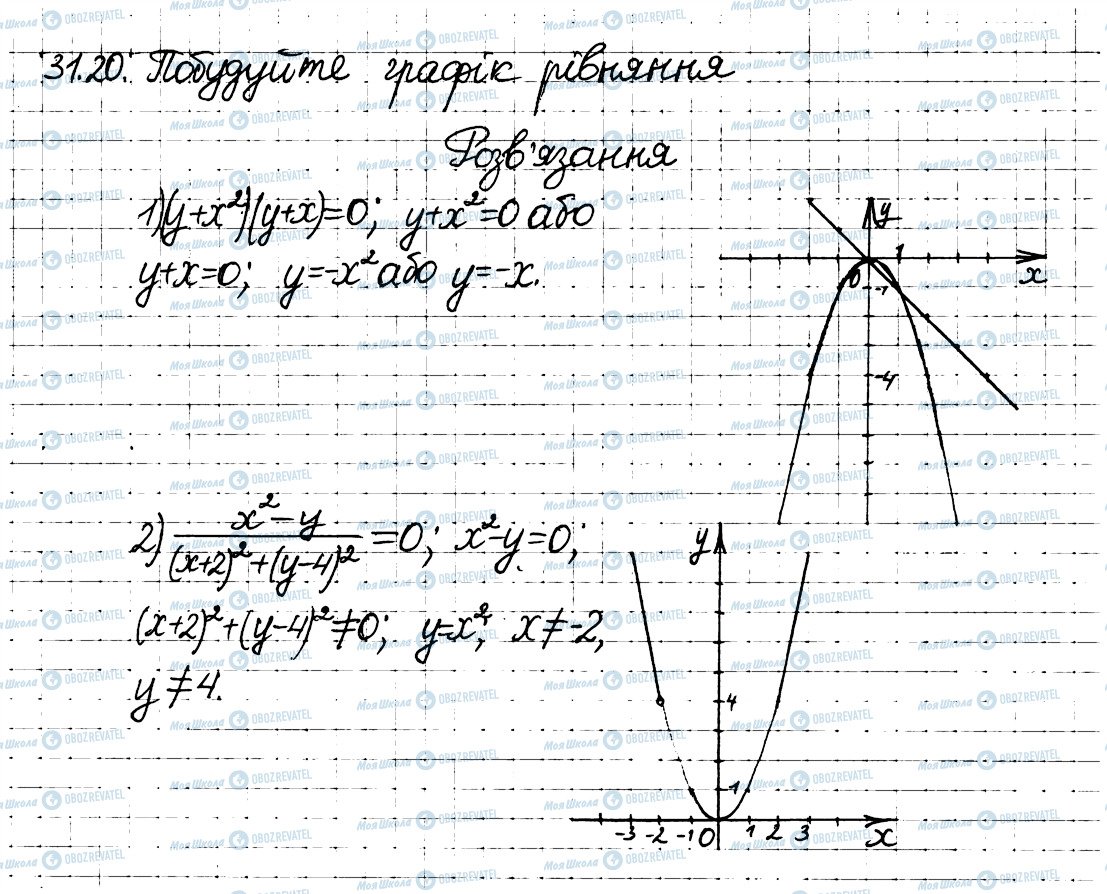 31.20. Побудуйте графік рівняння
Розв'язання
1) (y+x²)(y+x)=0; y+x²=0 або
y+x=0; y=-x² або y=-x.
y
1
x
0
-1
-4
2) (x²-y)/((x+2)²+(y-4)²)=0; x²-y=0;
(x+2)²+(y-4)²≠0; y=x², x≠-2,
y≠4.
y
4
1
-3 -2 -1 0 1 2 3 x
МояШкола OBOZREVATEL